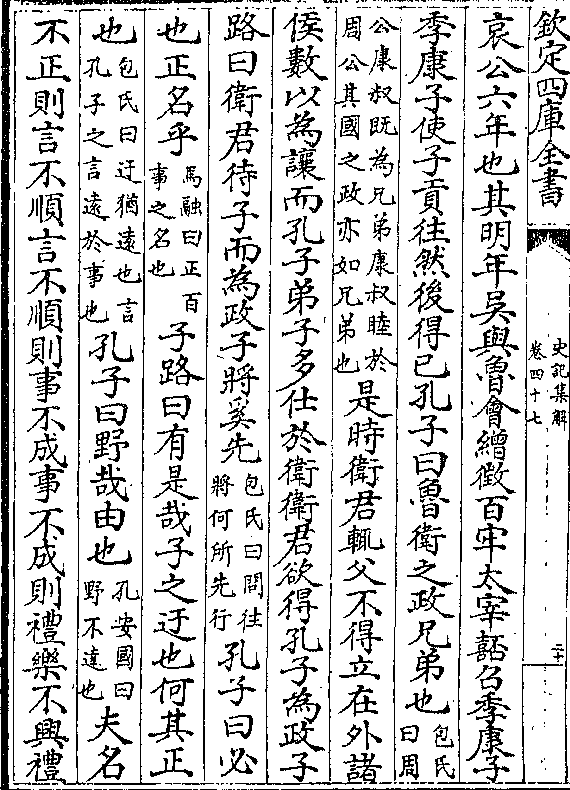 欽定四庫全書
史記集解
卷四十七
二十
哀公六年也其明年吳與魯會繒徵百牢太宰嚭召季康子
季康子使子貢往然後得已孔子曰魯衛之政兄弟也包氏曰周
公康叔既為兄弟康叔睦於周公其國之政亦如兄弟也是時衛君輒父不得立在外諸
侯數以為讓而孔子弟子多仕於衛衛君欲得孔子為政子
路曰衛君待子而為政子將奚先包氏曰問往將何所先行孔子曰必
也正名乎馬融曰正百事之名也子路曰有是哉子之迂也何其正
也包氏曰迂猶遠也言孔子之言遠於事也孔子曰野哉由也孔安國曰野不達也夫名
不正則言不順言不順則事不成事不成則禮樂不興禮